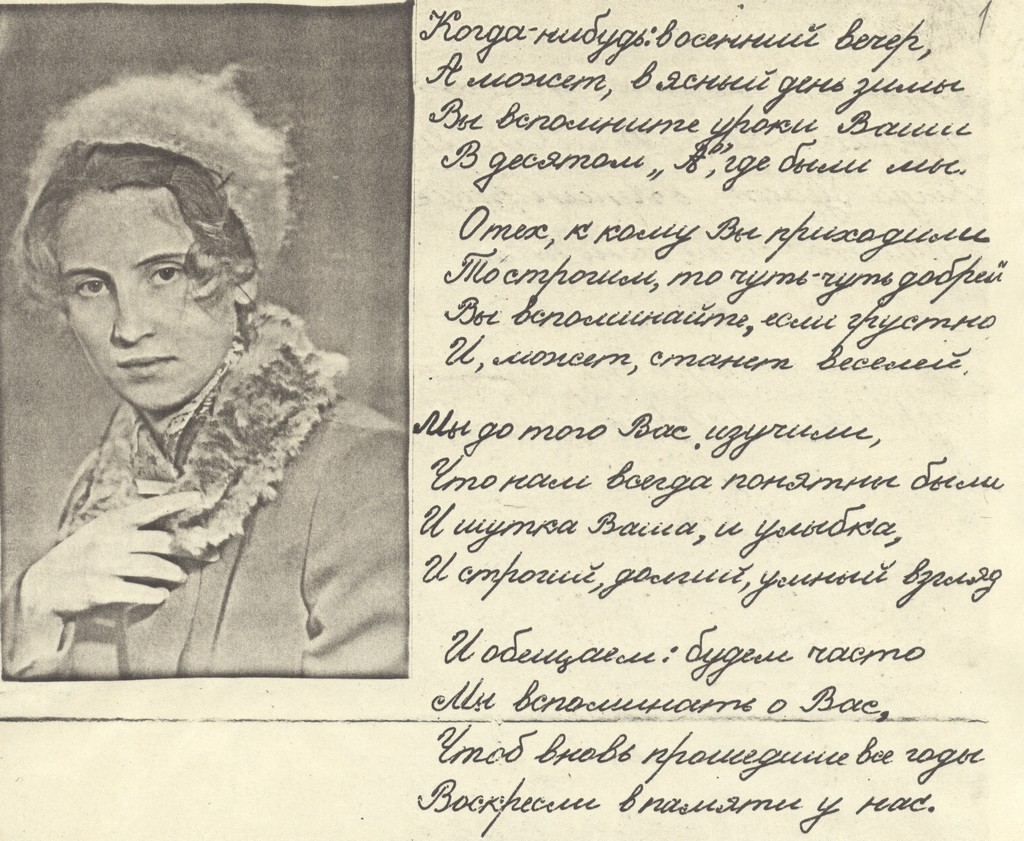 1
Когда-нибудь: в осенний вечер,
А может, в ясный день зимы
Вы вспомните уроки Ваши
В десятом „А", где были мы.
О тех, к кому Вы приходили
То строгим, то чуть-чуть добрей
Вы вспоминайте, если грустно
И, может, станет веселей.
Мы до того Вас изучили,
Что нам всегда понятны были
И шутка Ваша, и улыбка,
И строгий, долгий, умный взгляд
И обещаем: будем часто
Мы вспоминать о Вас,
Чтоб вновь прошедшие все годы
Воскресли в памяти у нас.